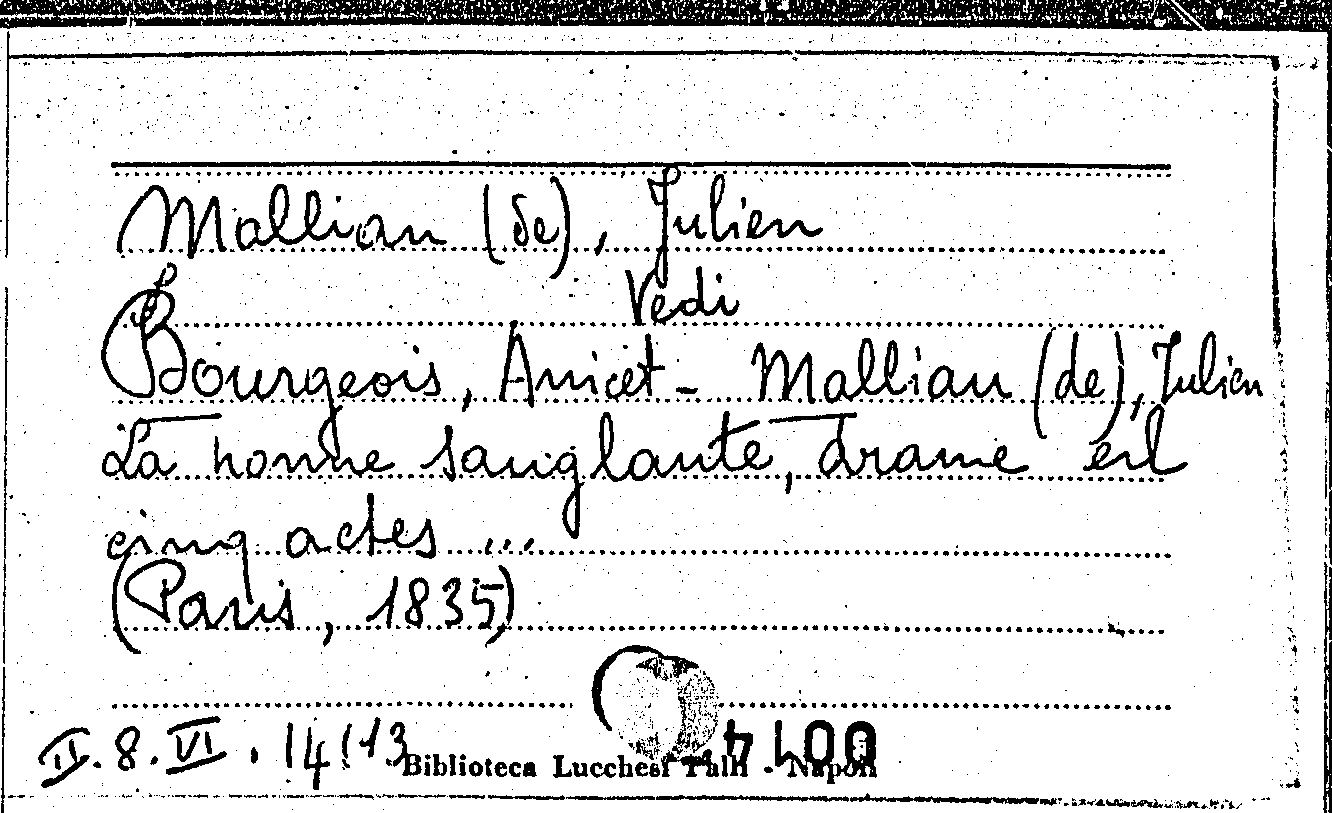 Mallian (de), Julien
Vedi
Bourgeois, Anicet - Mallian (de), Julien
La nonne sanglante, drame en
cinq actes ...
(Paris, 1835)
II.8.VI.14!13
Biblioteca Lucchesi Palli - Napoli